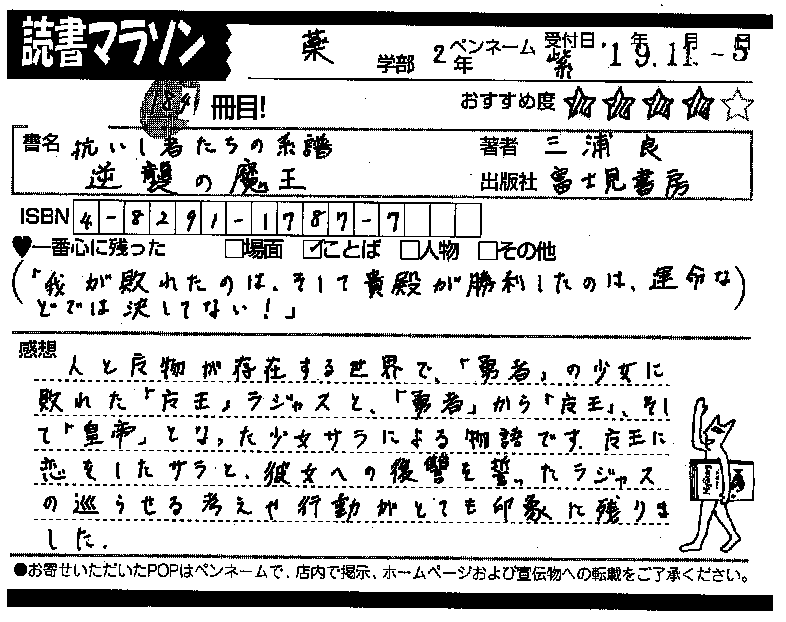 読書マラソン
薬 学部 2年 ペンネーム 紫 受付日 '19.11.-5 年 月 日
184 冊目! おすすめ度 ★★★★☆
書名 抗いし者たちの系譜 著者 三浦良
逆襲の魔王 出版社 富士見書房
ISBN 4-8291-1787-7
♥一番心に残った □場面 ☑ことば □人物 □その他
(「我が敗れたのは、そして貴殿が勝利したのは、運命な
どでは決してない!」)
感想
人と魔物が存在する世界で、「勇者」の少女に
敗れた「魔王」ラジャスと、「勇者」から「魔王」、そし
て「皇帝」となった少女サラによる物語です。魔王に
恋をしたサラと、彼女への復讐を誓ったラジャス
の巡らせる考えや行動がとても印象に残りま
した。
●お寄せいただいたPOPはペンネームで、店内で掲示、ホームページおよび宣伝物への転載をご了承ください。